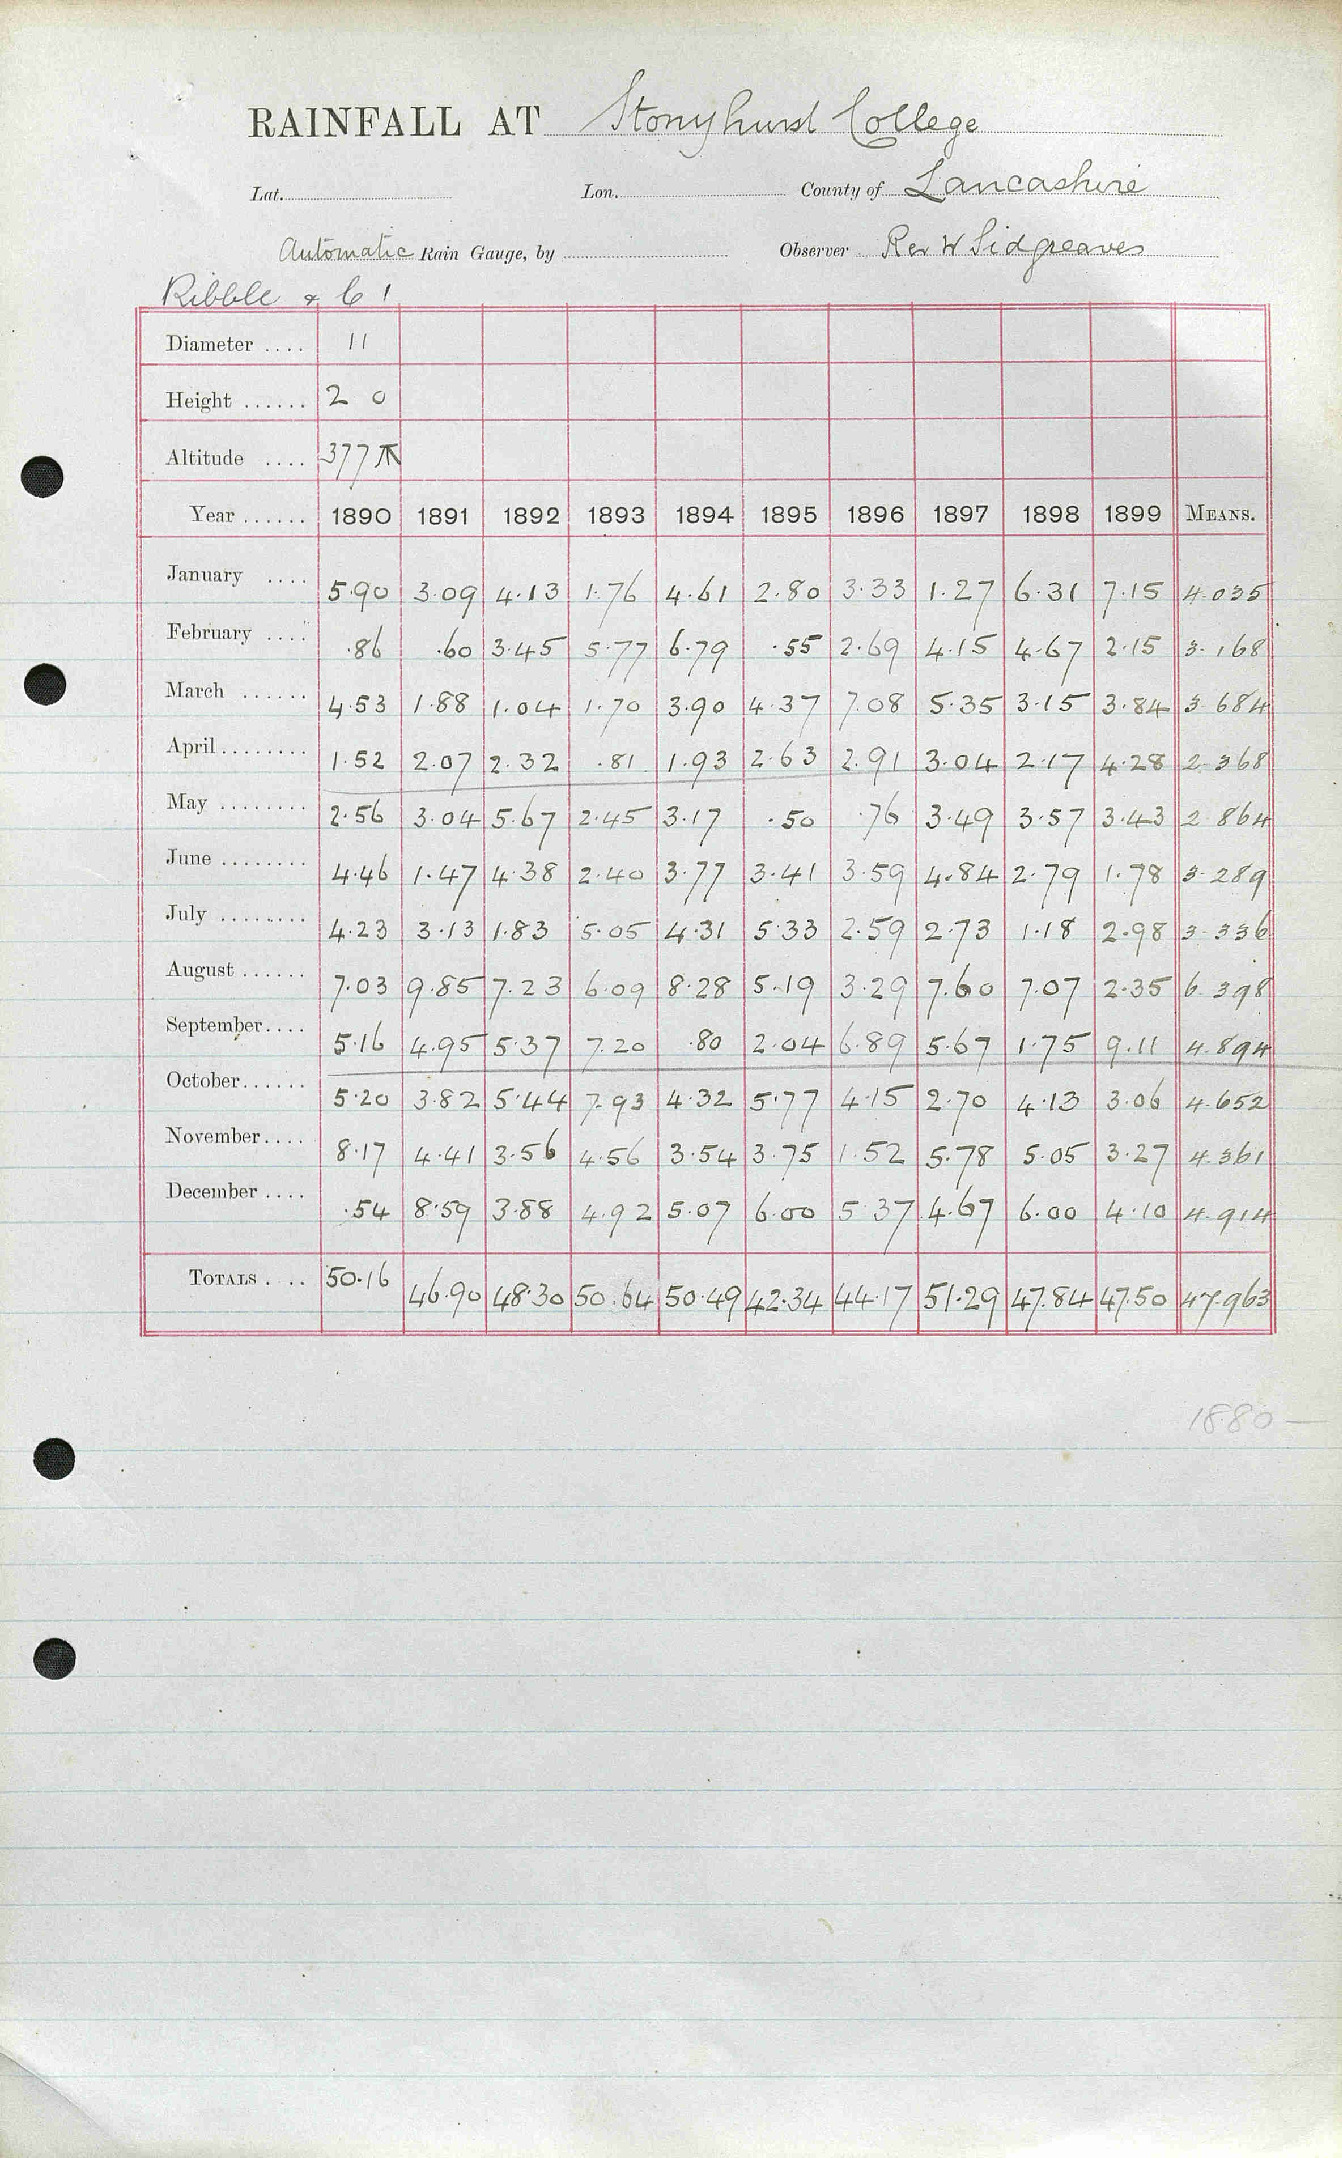 RAINFALL AT Stonyhurst College
Lat. Lon. County of Lancashire
Automatic Rain Gauge, by Observer Rev W Sidgreaves
Ribble &
Diameter .... 11
Height ...... 2 0
Altitude .... 377
Year ...... 1890 1891 1892 1893 1894 1895 1896 1897 1898 1899 MEANS.
January .... 5.90 3.09 4.13 1.76 4.61 2.80 3.33 1.27 6.31 7.15 4.035
February .... .86 .60 3.45 5.77 6.79 .55 2.69 4.15 4.67 2.15 3.168
March ...... 4.53 1.88 1.04 1.70 3.90 4.37 7.08 5.35 3.15 3.84 3.684
April ........ 1.52 2.07 2.32 .81 1.93 2.63 2.91 3.04 2.17 4.28 2.368
May ........ 2.56 3.04 5.67 2.45 3.17 .50 .76 3.49 3.57 3.43 2.864
June ........ 4.46 1.47 4.38 2.40 3.77 3.41 3.59 4.84 2.79 1.78 3.289
July ........ 4.23 3.13 1.83 5.05 4.31 5.33 2.59 2.73 1.18 2.98 3.336
August ...... 7.03 9.85 7.23 6.09 8.28 5.19 3.29 7.60 7.07 2.35 6.398
September.... 5.16 4.95 5.37 7.20 .80 2.04 6.89 5.67 1.75 9.11 4.894
October...... 5.20 3.82 5.44 7.93 4.32 5.77 4.15 2.70 4.13 3.06 4.652
November.... 8.17 4.41 3.56 4.56 3.54 3.75 1.52 5.78 5.05 3.27 4.361
December .... .54 8.59 3.88 4.92 5.07 6.00 5.37 4.67 6.00 4.10 4.914
TOTALS .... 50.16 46.90 48.30 50.64 50.49 42.34 44.17 51.29 47.84 47.50 47.963
1880 —